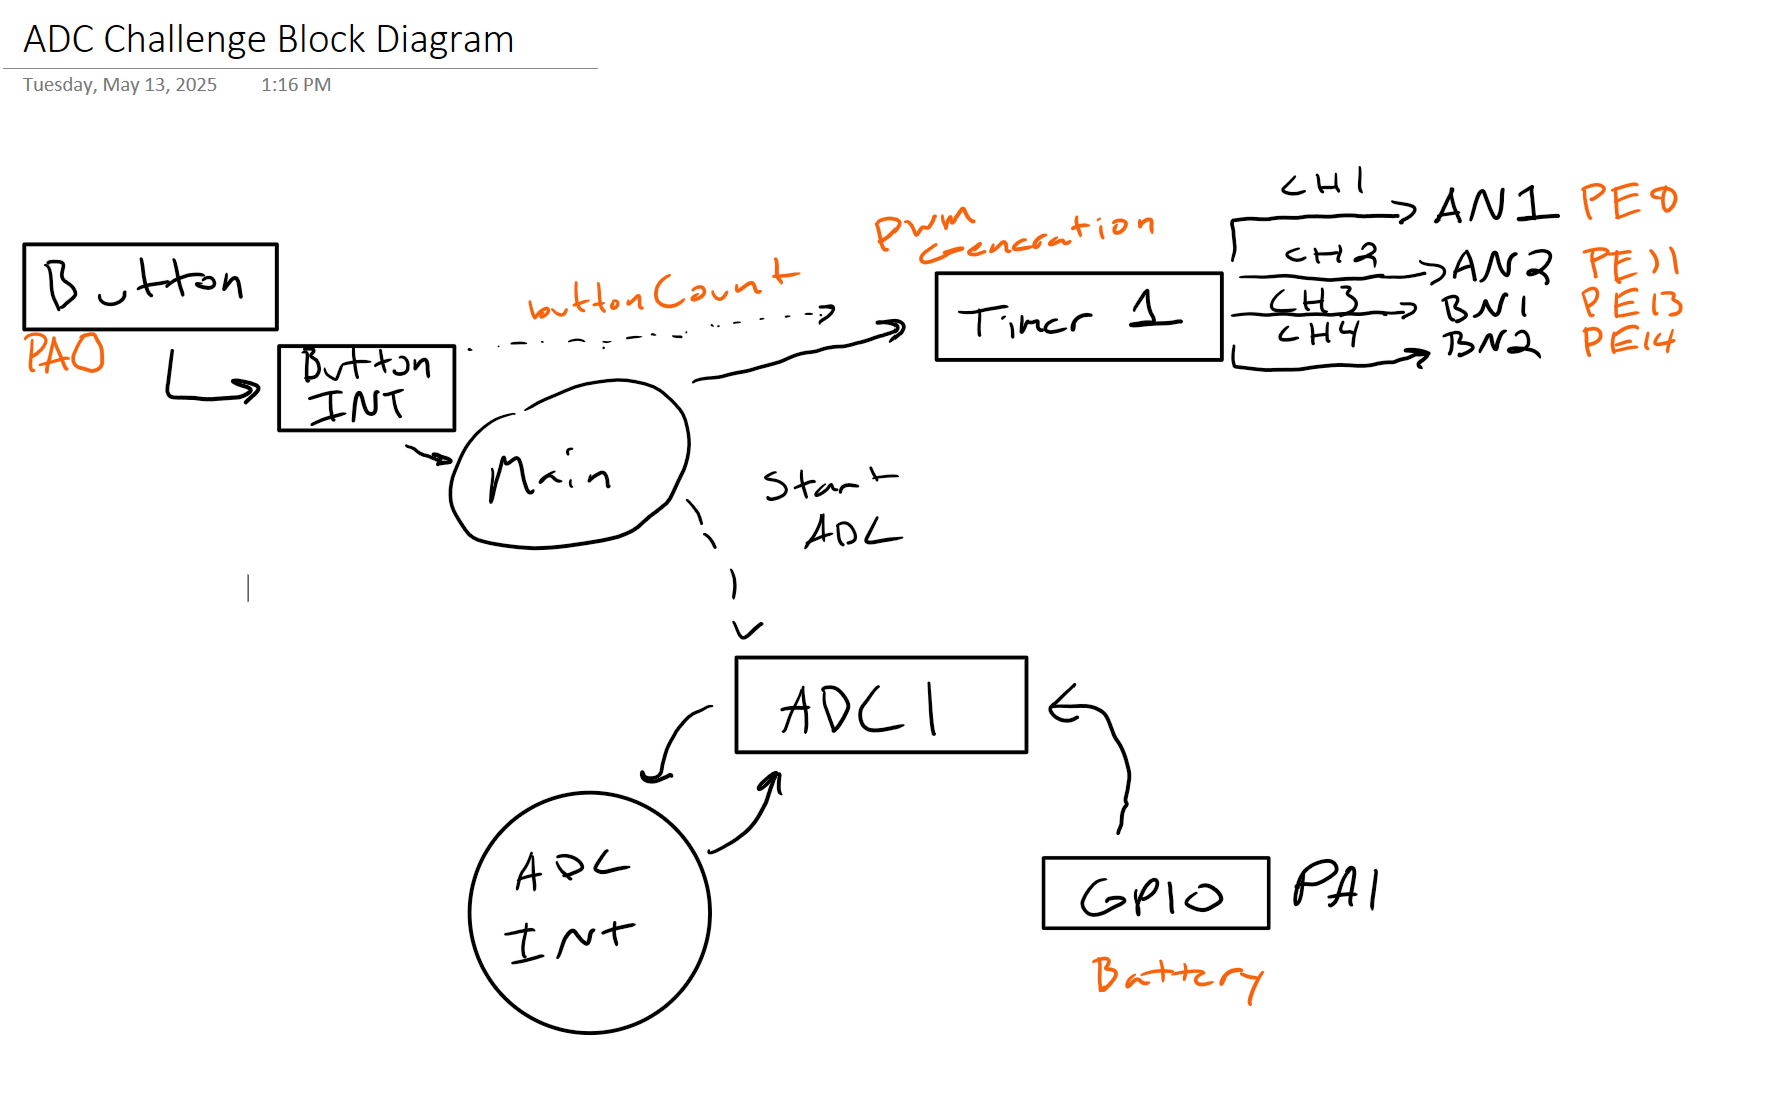 ADC Challenge Block Diagram
Tuesday, May 13, 2025 1:16 PM
Button
PA0
Button
INT
buttonCount
Main
PWM
Generation
Timer 1
CH1 AN1 PE8
CH2 AN2 PE11
CH3 BN1 PE13
CH4 BN2 PE14
Start
ADC
ADC1
ADC
INT
GPIO PA1
Battery